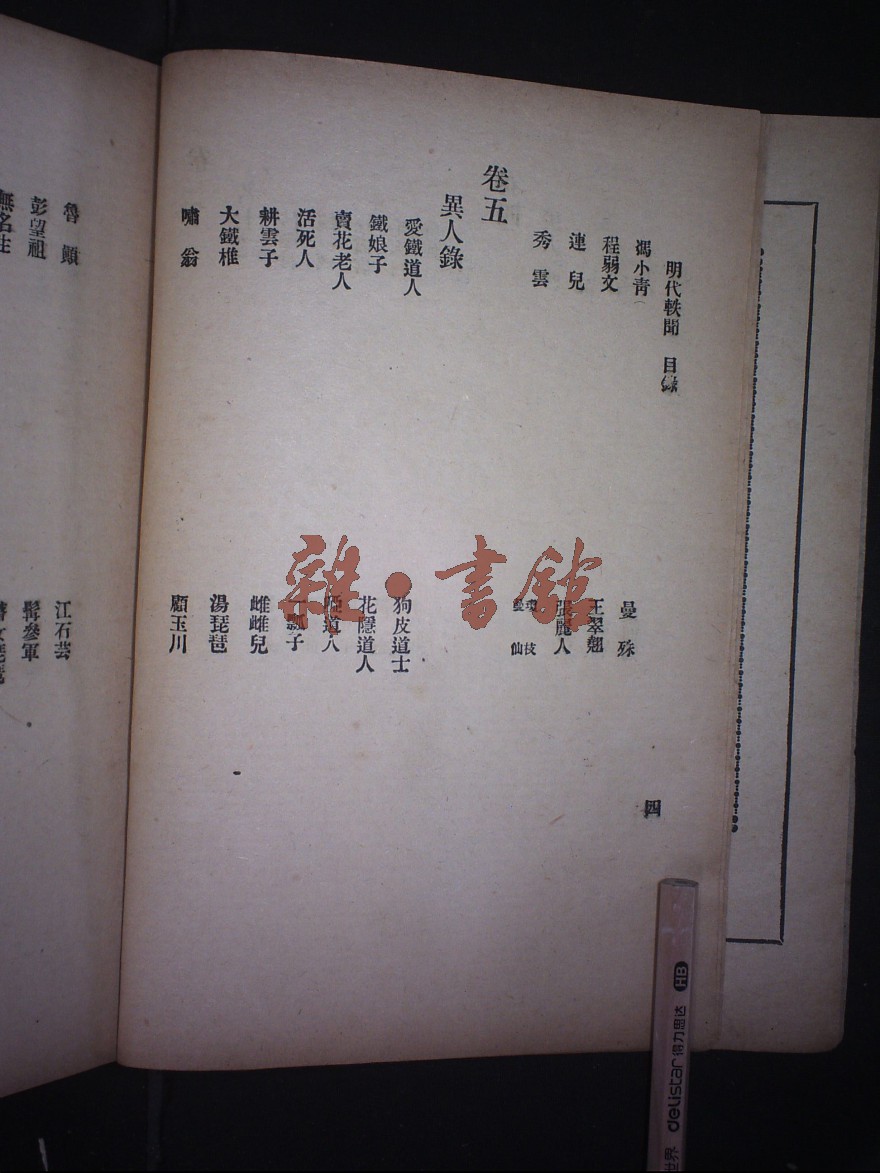 明代軼聞 目錄 四
馮小青 曼殊
程弱文 王翠翹
連兒 張麗人
秀雲 曼仙
卷五
異人錄
愛鐵道人 狗皮道士
鐵娘子 花隱道人
賣花老人 啞道人
活死人 一瓢子
耕雲子 雌雌兒
大鐵椎 湯琵琶
嘯翁 顧玉川
魯顛 江石芸
彭望祖 髯參軍
無名生
雜·書館
HB
delistar 得力思达
世界